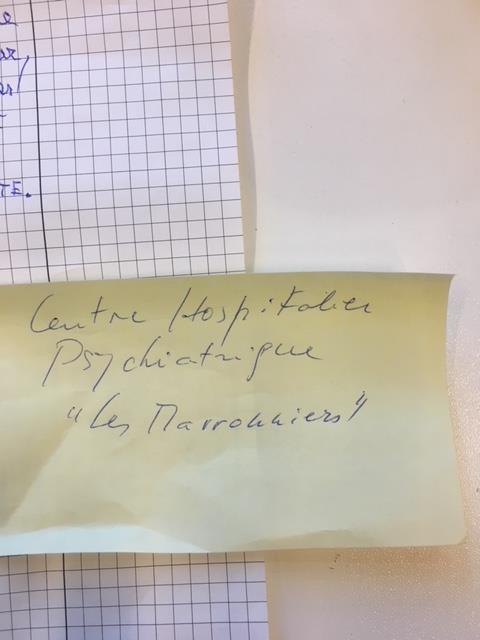 Centre Hospitalier
Psychiatrique
"Les Marronniers"